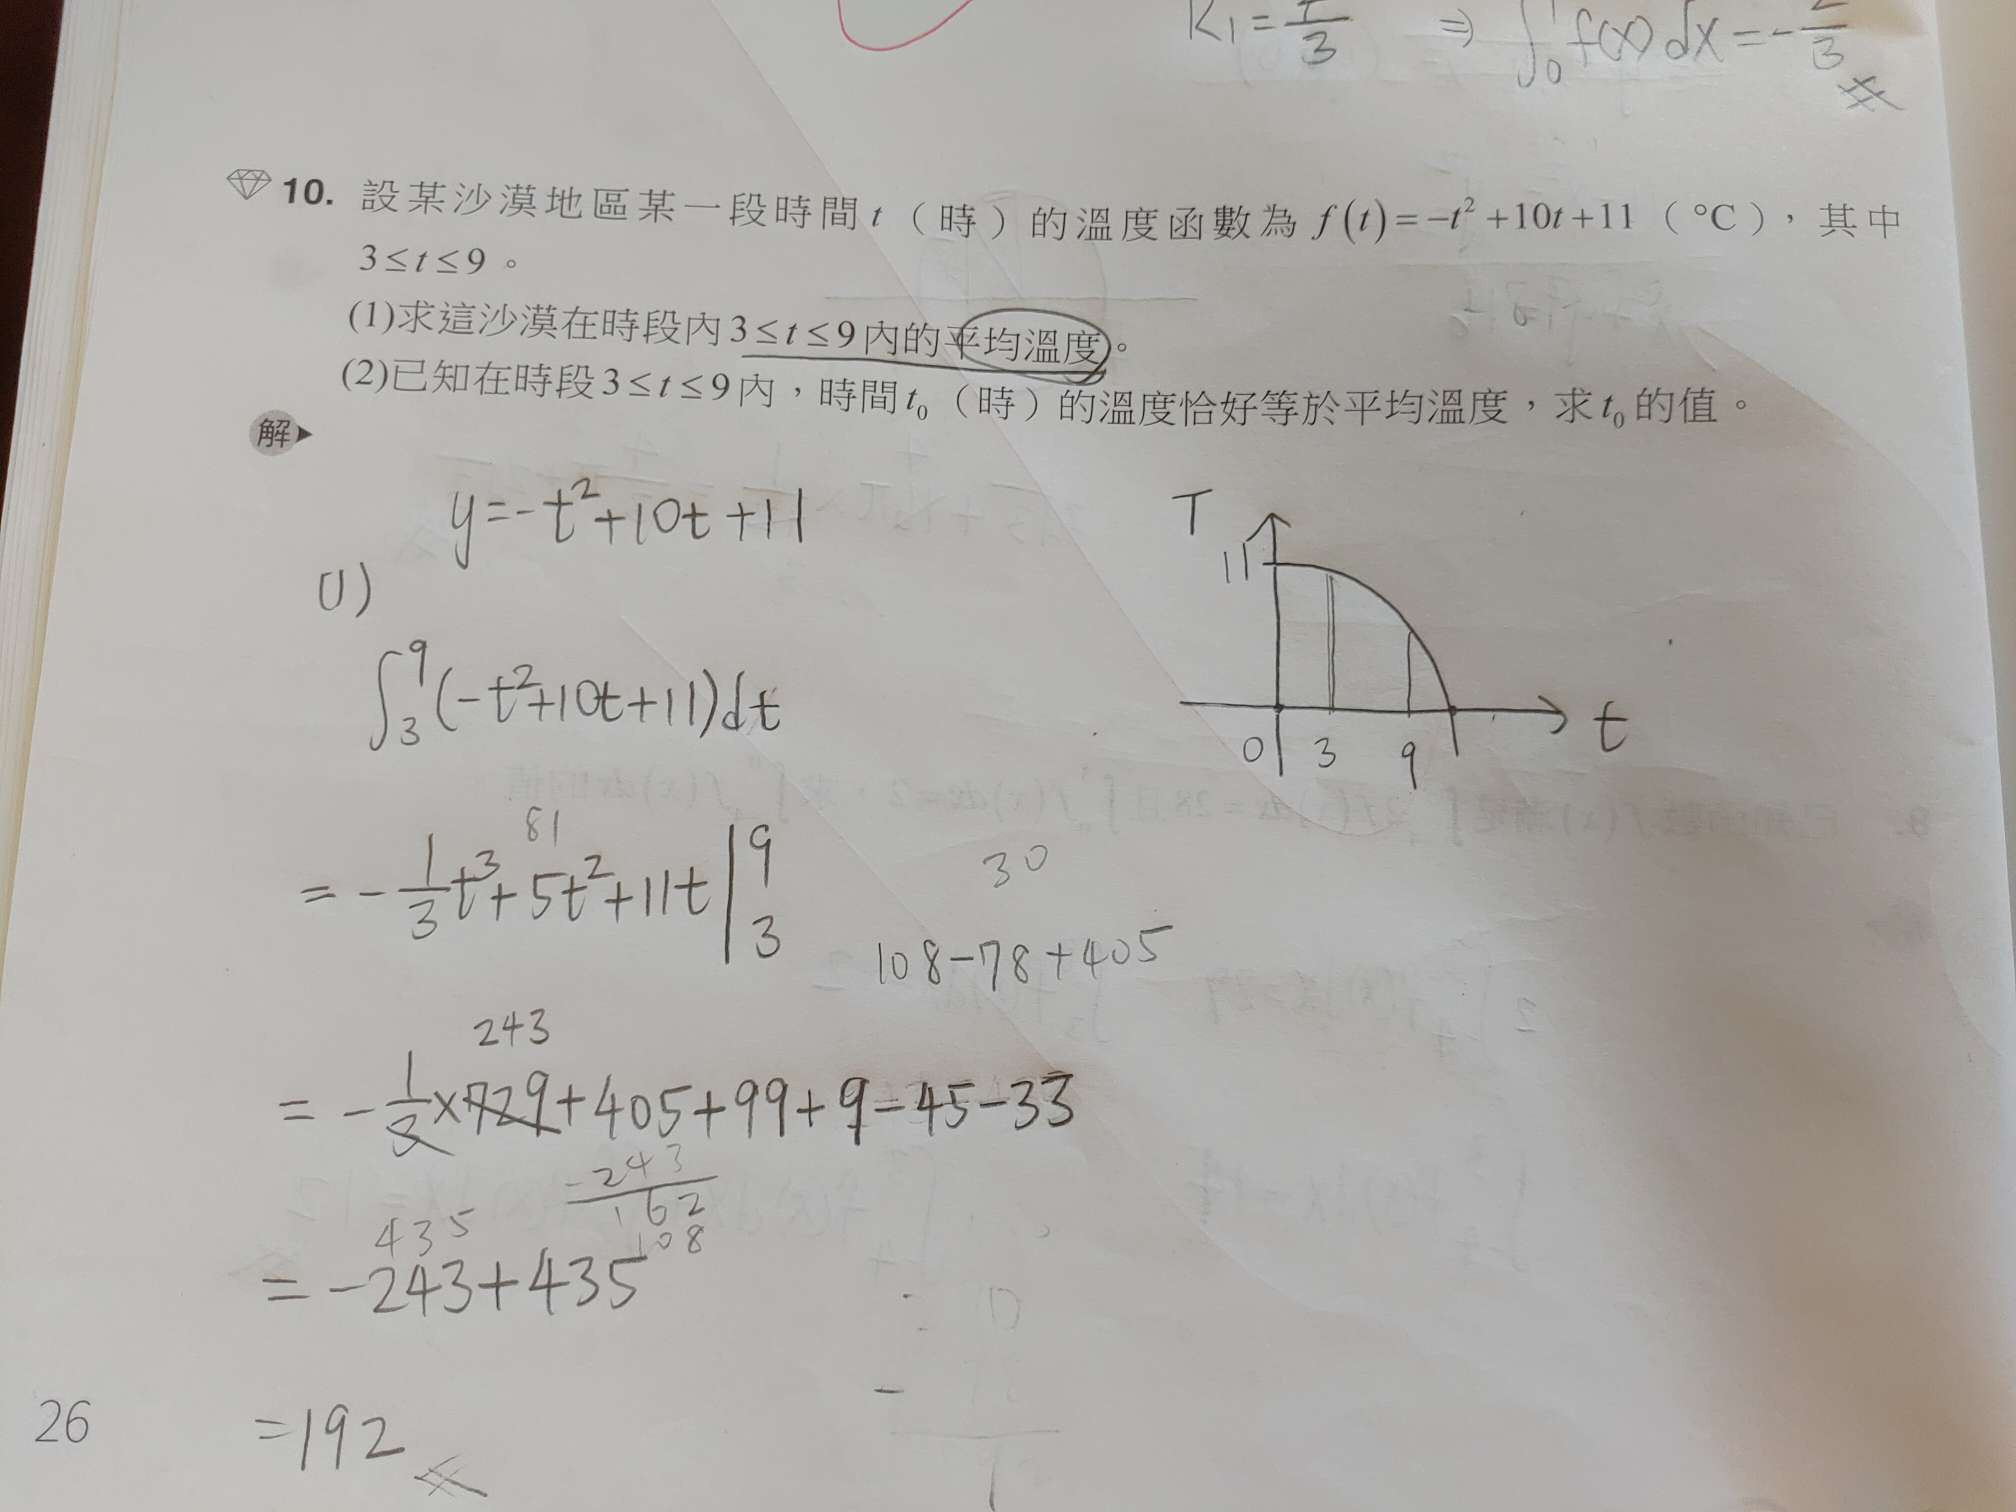 K₁ = I/3 ⇒ ∫₀¹ f(x) dx = -2/3
10. 設某沙漠地區某一段時間 t（時）的溫度函數為 f(t) = -t² + 10t + 11（°C），其中
3 ≤ t ≤ 9。
(1)求這沙漠在時段內 3 ≤ t ≤ 9 內的平均溫度。
(2)已知在時段 3 ≤ t ≤ 9 內，時間 t₀（時）的溫度恰好等於平均溫度，求 t₀ 的值。
解
y = -t² + 10t + 11
T
11
0 3 9 t
(1)
∫₃⁹ (-t² + 10t + 11) dt
81
= -1/3 t³ + 5t² + 11t |₃⁹
30
108 - 78 + 405
243
= -1/3 × 729 + 405 + 99 + 9 - 45 - 33
-243
162
108
435
= -243 + 435
= 192
26